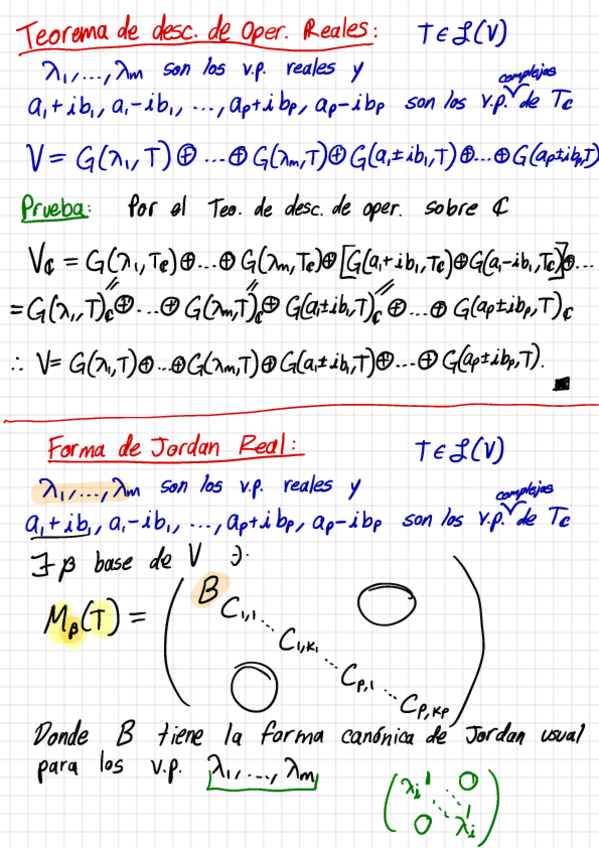 Teorema de desc. de Oper. Reales: T ∈ ℒ(V)
λ₁, ..., λm son los v.p. reales y
a₁+ib₁, a₁-ib₁, ..., ap+ibp, ap-ibp son los v.p. complejos de Tc
V = G(λ₁,T) ⊕ ... ⊕ G(λm,T) ⊕ G(a₁±ib₁,T) ⊕ ... ⊕ G(ap±ibp,T)
Prueba: Por el Teo. de desc. de oper. sobre ℂ
Vc = G(λ₁,Tc) ⊕ ... ⊕ G(λm,Tc) ⊕ [G(a₁+ib₁,Tc) ⊕ G(a₁-ib₁,Tc)] ⊕ ...
= G(λ₁,T)c ⊕ ... ⊕ G(λm,T)c ⊕ G(a₁±ib₁,T)c ⊕ ... ⊕ G(ap±ibp,T)c
∴ V = G(λ₁,T) ⊕ ... ⊕ G(λm,T) ⊕ G(a₁±ib₁,T) ⊕ ... ⊕ G(ap±ibp,T). ■
Forma de Jordan Real: T ∈ ℒ(V)
λ₁, ..., λm son los v.p. reales y
a₁+ib₁, a₁-ib₁, ..., ap+ibp, ap-ibp son los v.p. complejos de Tc
∃ β base de V ∋.
Mβ(T) = ( B C₁,₁ ... C₁,k₁ ... Cp,₁ ... Cp,kp 0 0 )
Donde B tiene la forma canónica de Jordan usual
para los v.p. λ₁, ..., λm
( λi 1 0
0 λi )